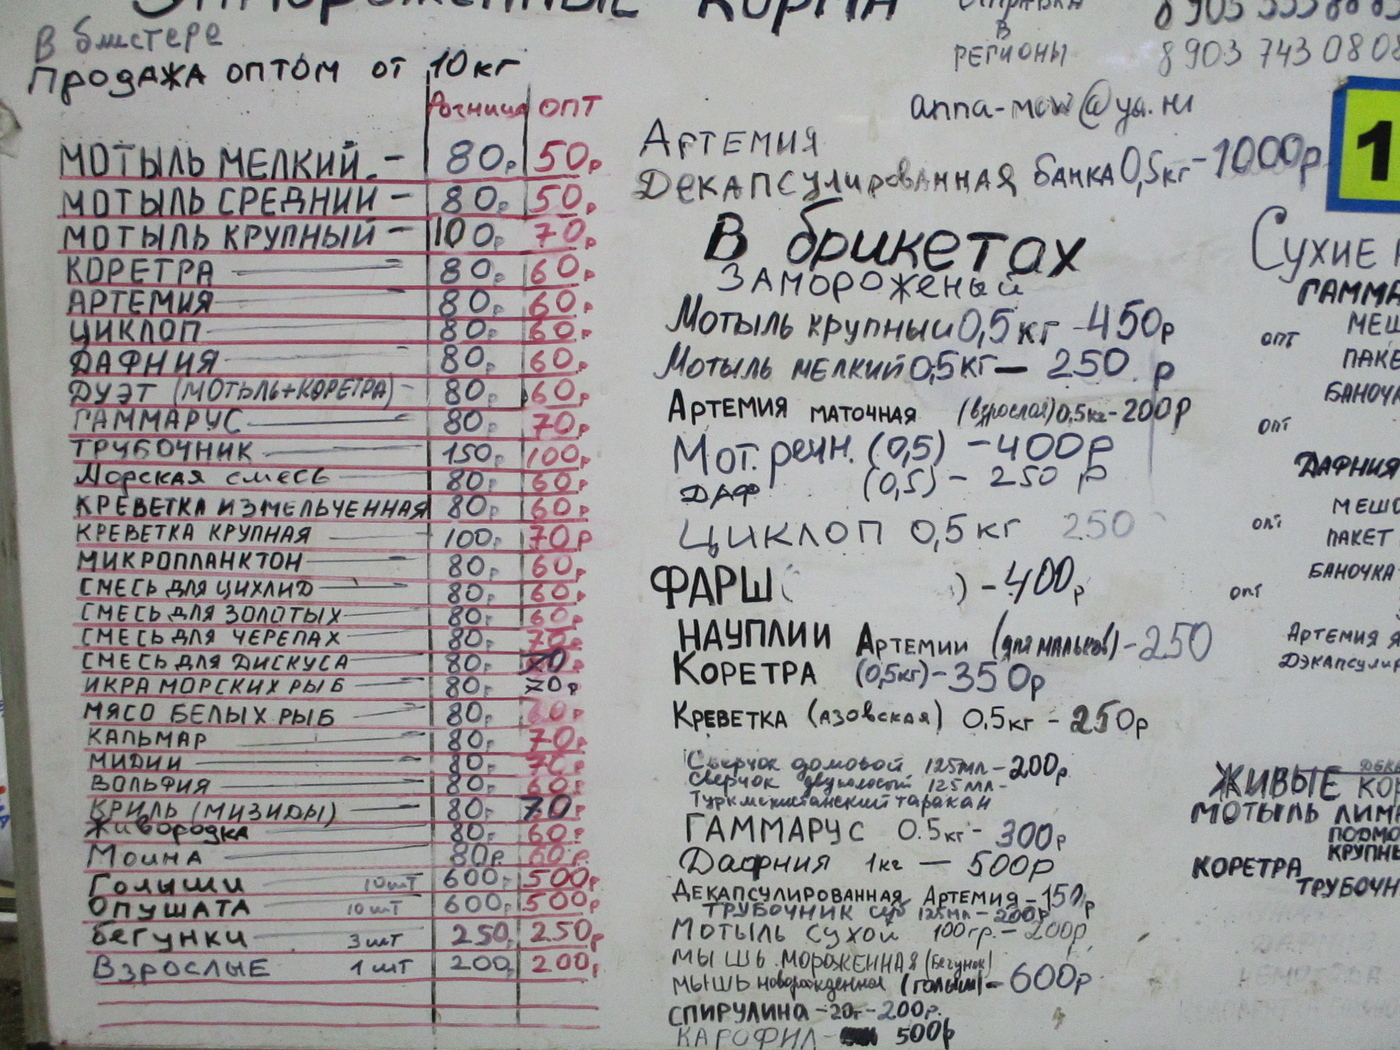 ЗАМОРОЖЕННЫЕ КОРМА
В блистере
ПРОДАЖА ОПТОМ ОТ 10 кг
Розница ОПТ
МОТЫЛЬ МЕЛКИЙ - 80р 50р
МОТЫЛЬ СРЕДНИЙ - 80р 50р
МОТЫЛЬ КРУПНЫЙ - 100р 70р
КОРЕТРА 80р 60р
АРТЕМИЯ 80р 60р
ЦИКЛОП 80р 60р
ДАФНИЯ 80р 60р
ДУЭТ (МОТЫЛЬ+КОРЕТРА) - 80р 60р
ГАММАРУС 80р 70р
ТРУБОЧНИК 150р 100р
Морская смесь 80р 60р
КРЕВЕТКА ИЗМЕЛЬЧЕННАЯ 80р 60р
КРЕВЕТКА КРУПНАЯ 100р 70р
МИКРОПЛАНКТОН 80р 60р
СМЕСЬ ДЛЯ ЦИХЛИД 80р 60р
СМЕСЬ ДЛЯ ЗОЛОТЫХ 80р 60р
СМЕСЬ ДЛЯ ЧЕРЕПАХ 80р 70р
СМЕСЬ ДЛЯ ДИСКУСА 80р 70р
ИКРА МОРСКИХ РЫБ 80р 70р
МЯСО БЕЛЫХ РЫБ 80р 60р
КАЛЬМАР 80р 70р
МИДИИ 80р 70р
ВОЛЬФИЯ 80р 60р
КРИЛЬ (МИЗИДЫ) 80р 70р
Живородка 80р 60р
Моина 80р 60р
Голыши 10шт 600р 500р
ОПУШАТА 10шт 600р 500р
бегунки 3шт 250р 250р
Взрослые 1шт 200р 200р
В
РЕГИОНЫ
8 903 743 0808
anna-mow@ya.ru
АРТЕМИЯ
ДЕКАПСУЛированная банка 0,5кг - 1000р
1
В брикетах
ЗАМОРОЖЕНЫЙ
Мотыль крупный 0,5кг - 450р
Мотыль мелкий 0,5кг — 250 р
Артемия маточная (взрослая) 0,5кг - 200р
Мот. речн. (0,5) - 400р
ДАФ (0,5) - 250 р
ЦИКЛОП 0,5кг 250
ФАРШ ( ) - 400р
НАУПЛИИ Артемии (для мальков) - 250
КОРЕТРА (0,5кг) - 350р
КРЕВЕТКА (АЗОВСКАЯ) 0.5кг - 250р
Сверчок домовой 125мл - 200р
Сверчок двупятност 125мл -
Туркменистанский таракан
ГАММАРУС 0.5кг - 300р
Дафния 1кг — 500р
ДЕКАПСУЛИРОВАННАЯ АРТЕМИЯ - 150р
ТРУБОЧНИК сух 125мл - 200р
МОТЫЛЬ СУХОЙ 100гр. - 200р
МЫШЬ МОРОЖЕННАЯ (бегунок)
МЫШЬ новорожденная (голыш) - 600р
СПИРУЛИНА - 20г - 200р.
КАРОФИЛ - 500р
СУХИЕ
ГАММА
МЕШ
опт
ПАКЕ
БАНОЧКА
опт
ДАФНИЯ
МЕШО
опт
ПАКЕТ
БАНОЧКА
опт
АРТЕМИЯ
ДЭКАПСУЛИР
ЖИВЫЕ КОР
МОТЫЛЬ ЛИМ
ПОДМО
КРУПНЫ
КОРЕТРА
ТРУБОЧН